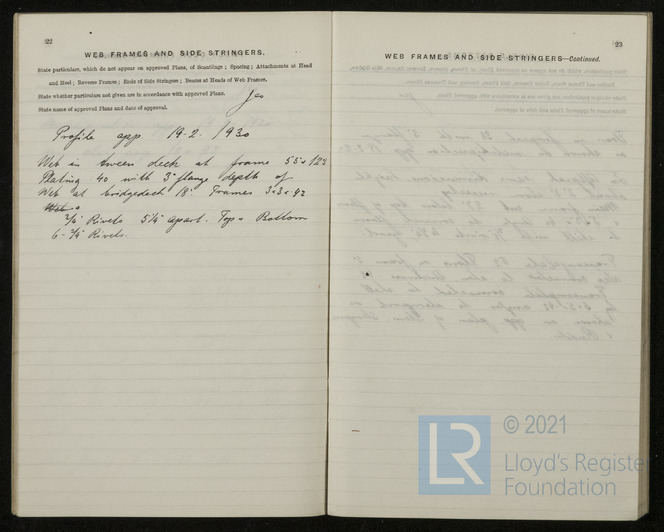 22
WEB FRAMES AND SIDE STRINGERS.
State particulars, which do not appear on approved Plans, of Scantlings; Spacing; Attachments at Head
and Heel; Reverse Frames; Ends of Side Stringers; Beams at Heads of Web Frames.
State whether particulars not given are in accordance with approved Plans.
Yes
State name of approved Plans and date of approval.
Profile app. 19.2.1930
Web in tween deck at frame 55 & 123
Plating 40 with 3" flange depth of
Web at bridgedeck 18" Frames
Rivets apart. Top & Bottom
6 - 3/4" Rivets.
23
WEB FRAMES AND SIDE STRINGERS—Continued.
LR
© 2021
Lloyd's Register
Foundation